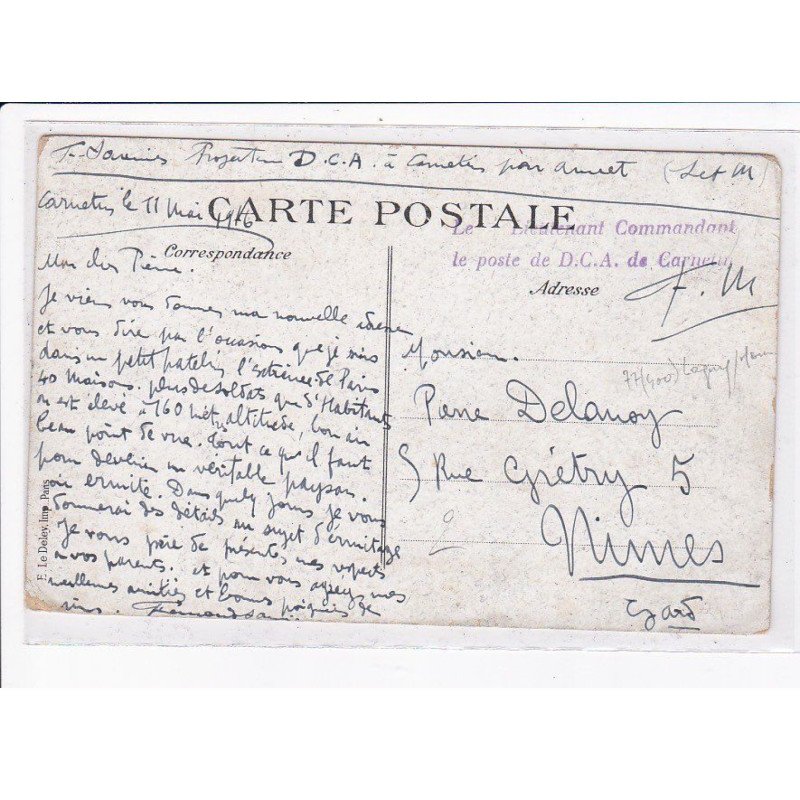 D.C.A. à Carnetin par Annet (S et M)
Carnetin le 11 Mai 1916
CARTE POSTALE
Correspondance
Le Lieutenant Commandant
le poste de D.C.A. de Carnetin
Adresse
F. M
Mon cher Pierre.
Je viens vous donner ma nouvelle adresse
et vous dire par l'occasion que je suis
dans un petit patelin l'extrémité de Paris
40 maisons. plus de soldats que d'Habitants
on est élevé à 160 mèt altitude, bon air
beau point de vue. tout ce qu'il faut
pour devenir un véritable paysan.
ou ermite. Dans quelq jours je vous
donnerai des détails au sujet d'ermitage
Je vous prie de présenter mes respects
à vos parents. et pour vous agréez mes
meilleures amitiés et bonnes poignées de
Monsieur.
Pierre Delanoy
5 Rue Grétry 5
Nimes
Gard
77(400)
2
F. Le Deley, Imp. Paris